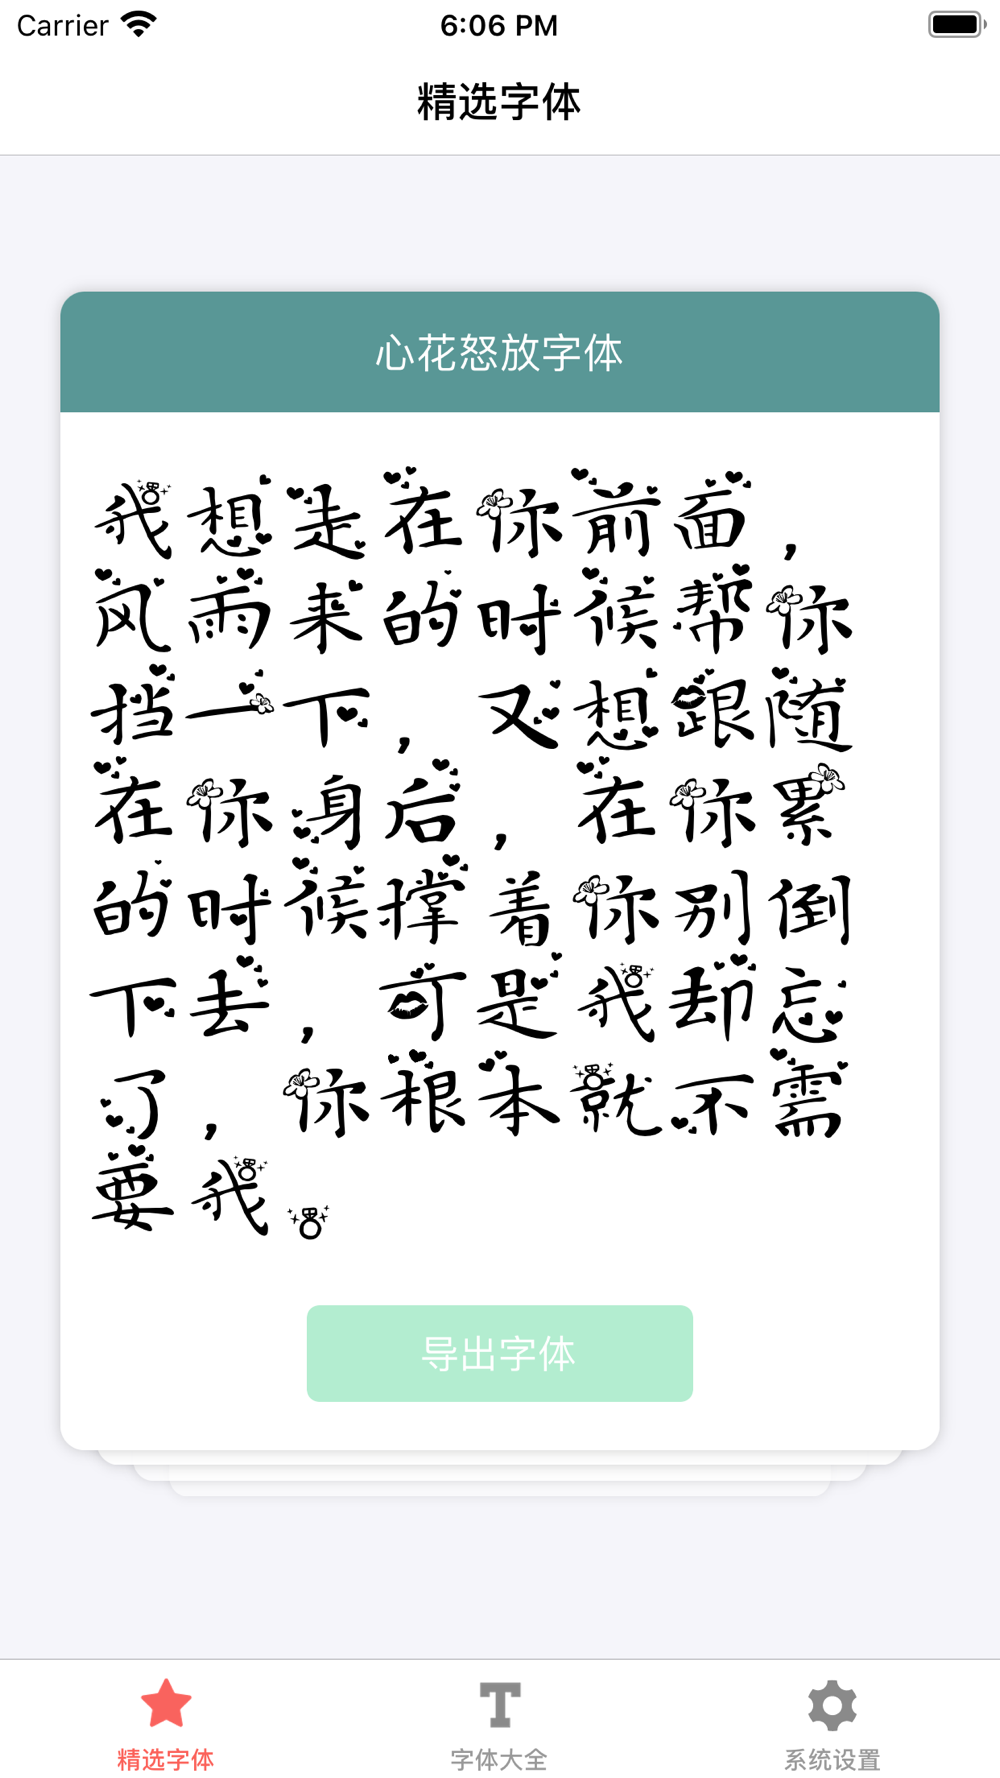 Carrier 6:06 PM
精选字体
心花怒放字体
我想走在你前面，
风雨来的时候帮你
挡一下，又想跟随
在你身后，在你累
的时候撑着你别倒
下去，可是我却忘
了，你根本就不需
要我。
导出字体
精选字体 字体大全 系统设置